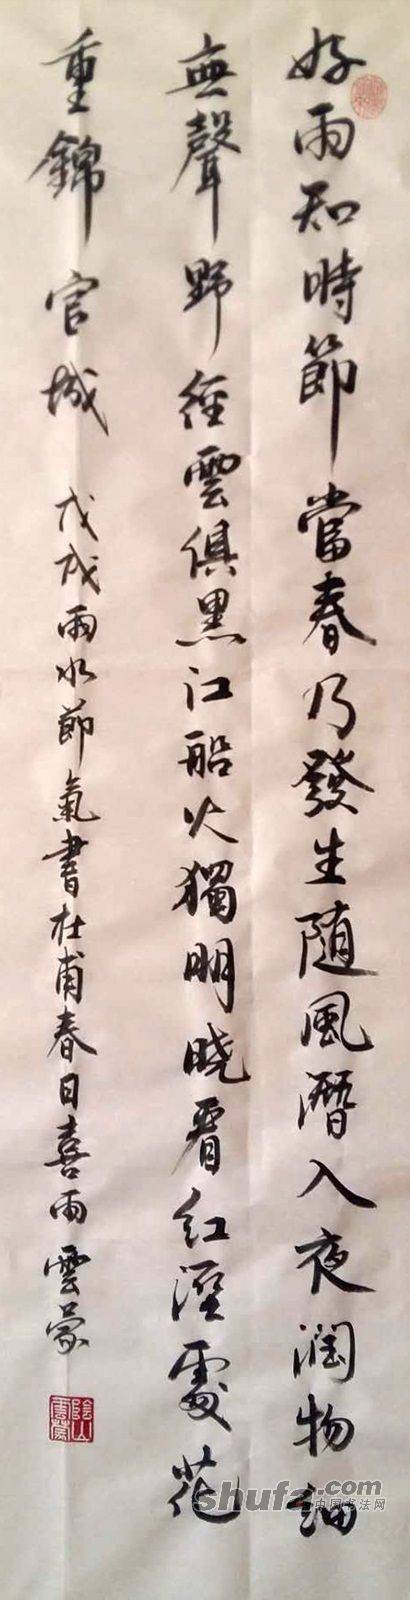 好雨知時節當春乃發生随風潛入夜潤物細
無聲野徑雲俱黑江船火獨明曉看紅溼處花
重錦官城 戊戌雨水節氣書杜甫春日喜雨 雲蒙
陰山雲蒙
shufa.com
中国书法网